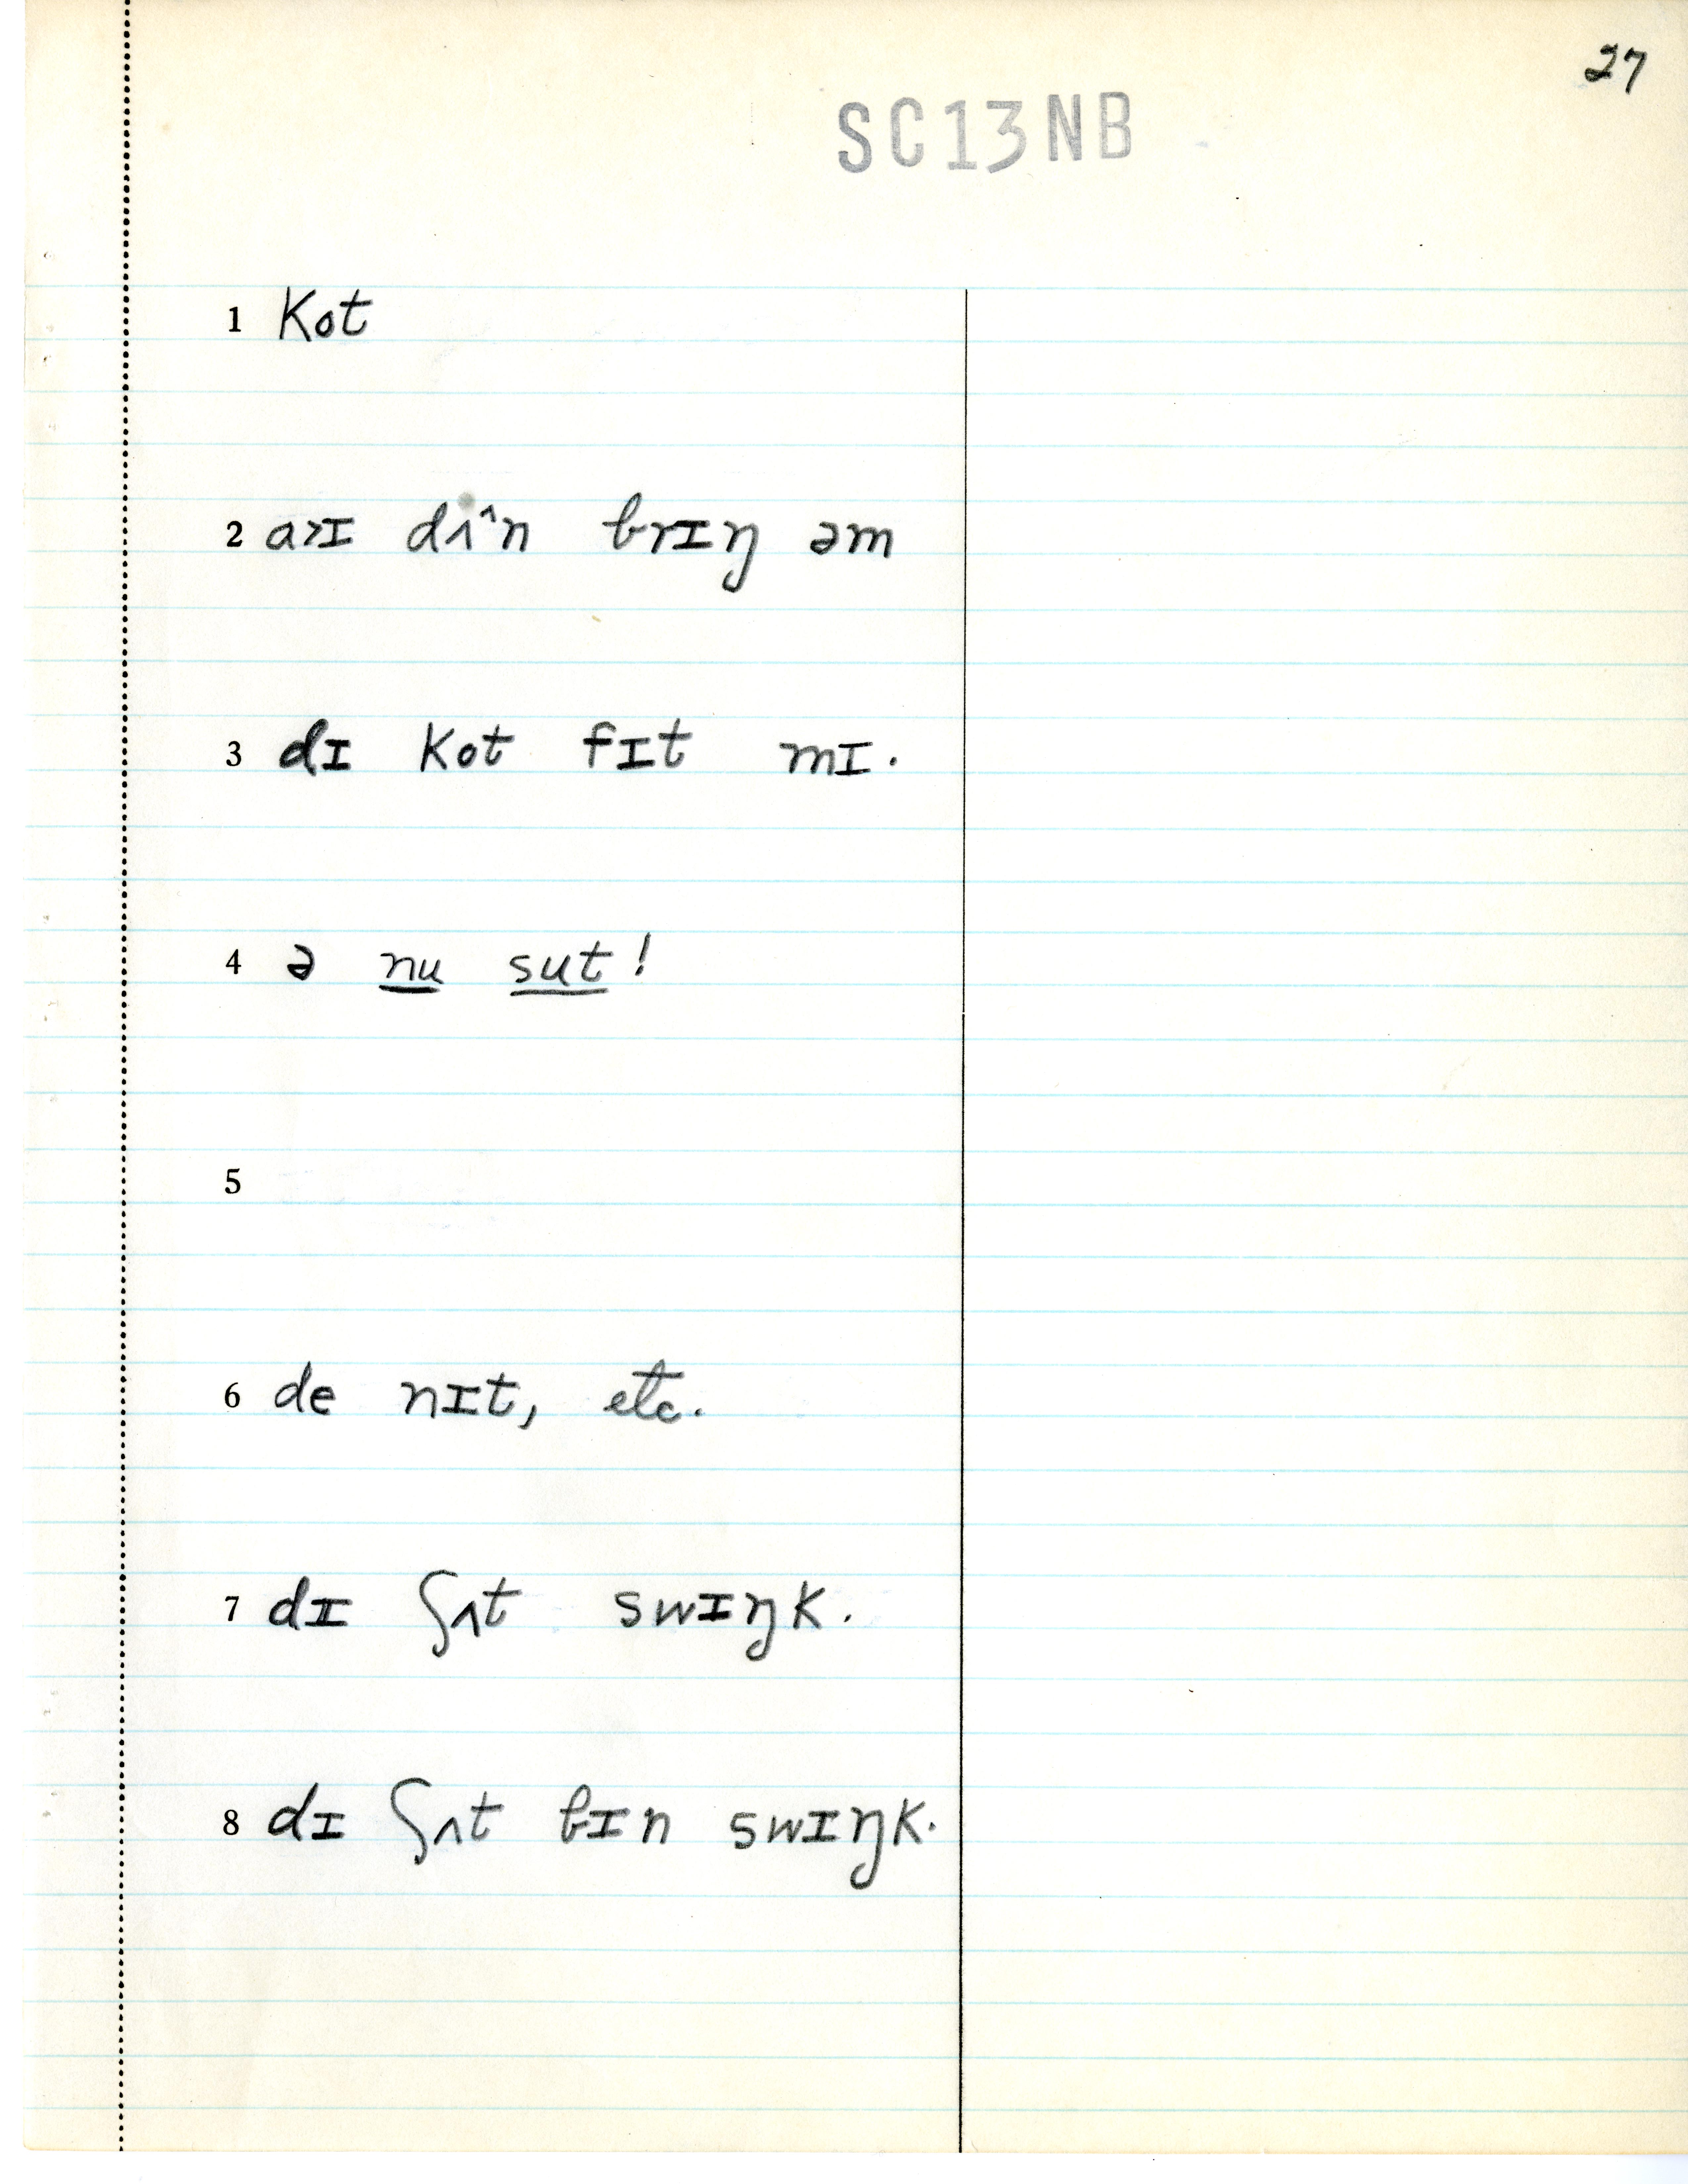 27
SC13NB
1 kot
2 a˃ɪ dʌ^n brɪŋ əm
3 dɪ kot fɪt mɪ.
4 ə nu sut!
5
6 de nɪt, etc.
7 dɪ ʃʌt swɪŋk.
8 dɪ ʃʌt bɪn swɪŋk.